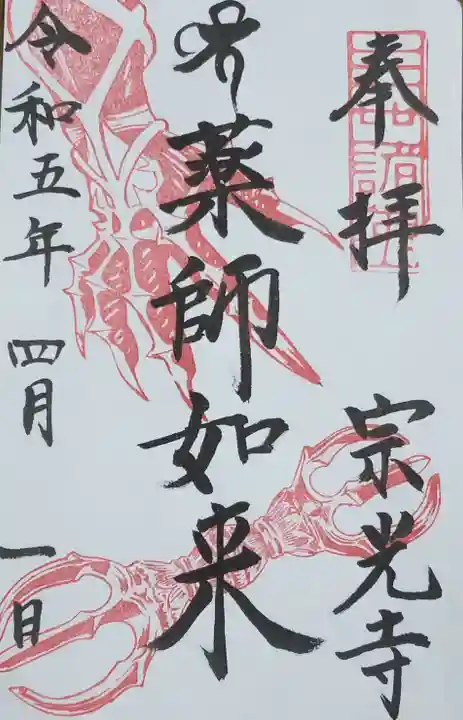 奉拝
宗光寺
薬師如来
令和五年 四月 一日